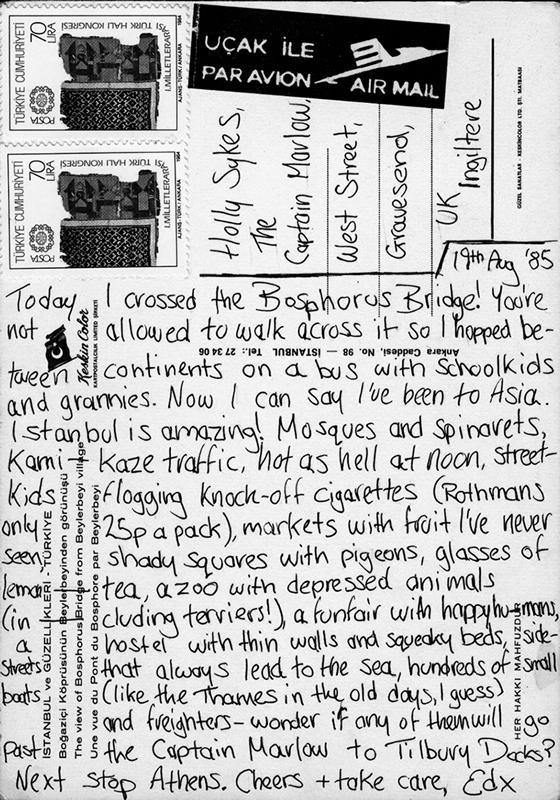 TÜRKİYE CUMHURİYETİ
70
LİRA
POSTA
I.MİLLETLERARASI
TÜRK HALI KONGRESİ
1984
AJANS-TÜRK/ANKARA
TÜRKİYE CUMHURİYETİ
70
LİRA
POSTA
I.MİLLETLERARASI
TÜRK HALI KONGRESİ
1984
AJANS-TÜRK/ANKARA
UÇAK İLE
PAR AVION
AIR MAIL
Holly Sykes,
The
Captain Marlow,
West Street,
Gravesend,
UK
Ingiltere
GÜZEL SANATLAR - KESKİNCOLOR LTD. ŞTİ. MATBAASI
19th Aug '85
Today I crossed the Bosphorus Bridge! You're
not allowed to walk across it so I hopped be-
tween continents on a bus with schoolkids
and grannies. Now I can say I've been to Asia.
Istanbul is amazing! Mosques and spinarets,
Kami-Kaze traffic, hot as hell at noon, street-
Kids flogging knock-off cigarettes (Rothmans
only 25p a pack), markets with fruit I've never
seen, shady squares with pigeons, glasses of
lemon tea, a zoo with depressed animals
(in cluding terriers!), a funfair with happy humans,
a hostel with thin walls and squeaky beds, side-
streets that always lead to the sea, hundreds of small
boats (like the Thames in the old days, I guess)
and freighters - wonder if any of them will go
past the Captain Marlow to Tilbury Docks?
Next stop Athens. Cheers + take care, Edx
Keskin Color
KARTPOSTALCILIK LİMİTED ŞİRKETİ
Ankara Caddesi, No. 98 — İSTANBUL Tel.: 27 34 06
İSTANBUL ve GÜZELLİKLERİ - TÜRKİYE
Boğaziçi Köprüsünün Beylerbeyinden görünüşü
The view of Bosphorus Bridge from Beylerbeyi village
Une vue du Pont du Bosphore par Beylerbeyi
HER HAKKI MAHFUZDUR